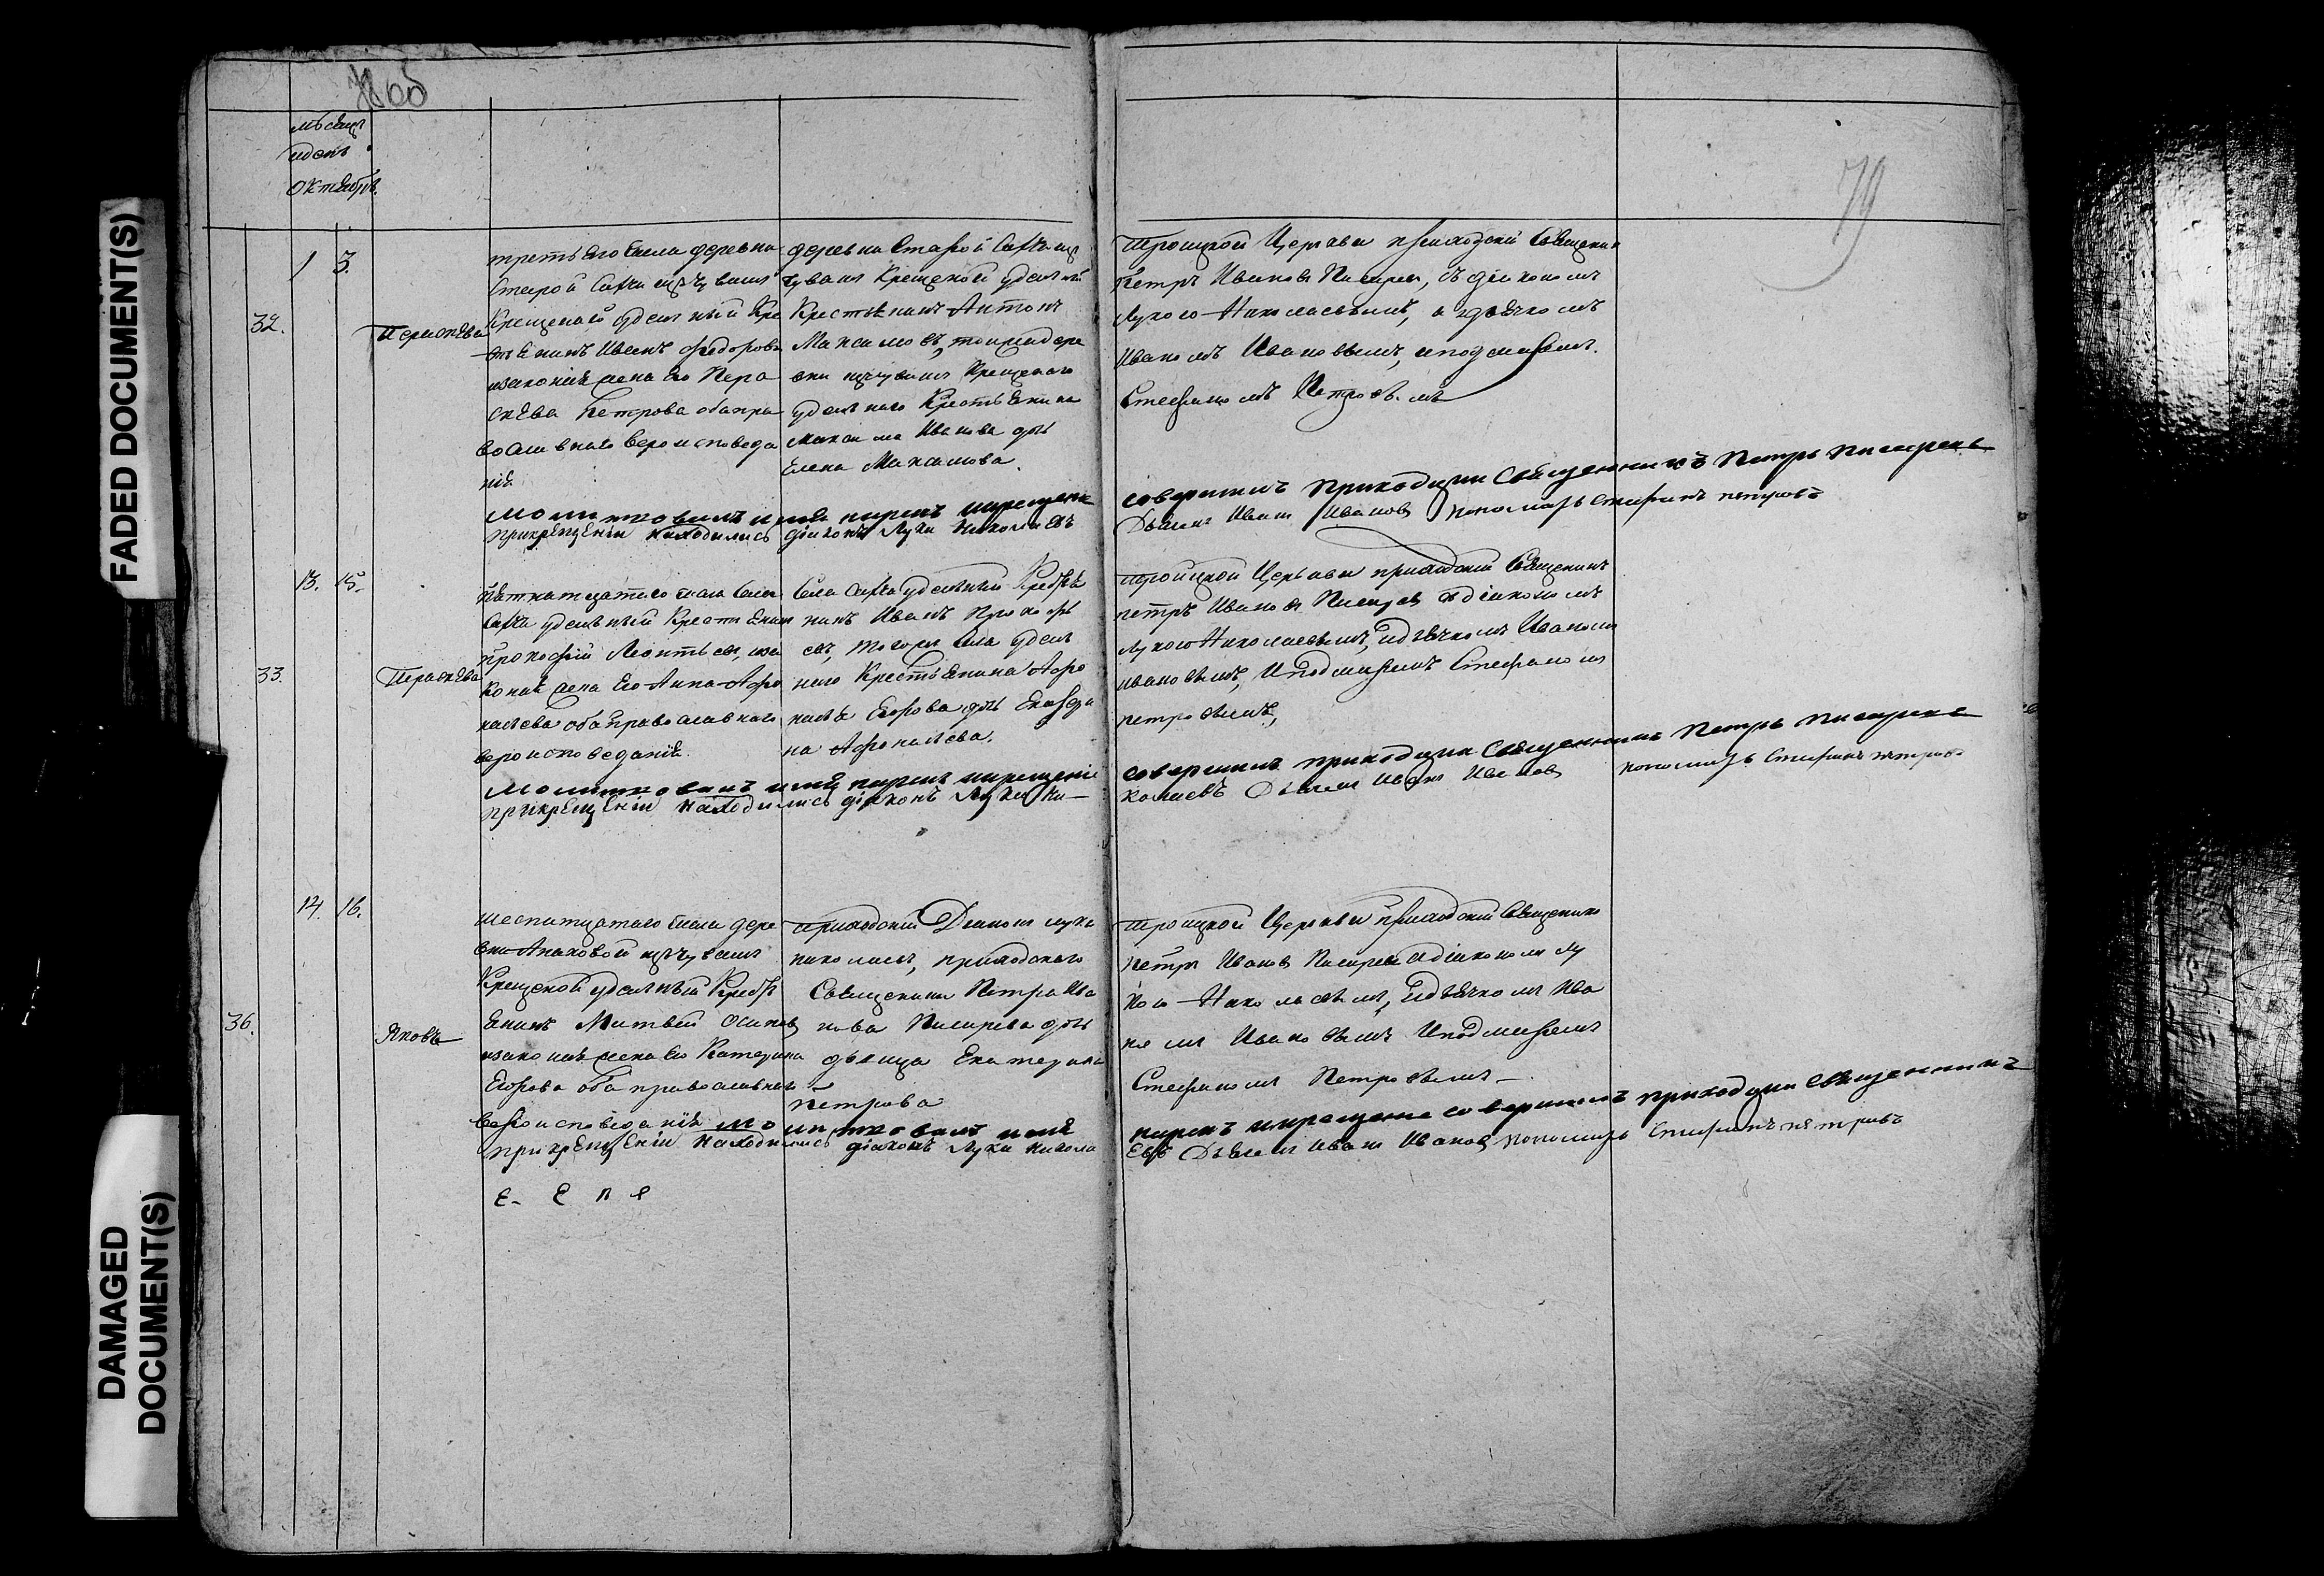 FADED DOCUMENT(S)
DAMAGED DOCUMENT(S)
79
мѣсяцъ
и день
Октябрь.
1 3.
32.
Пераскева
третьяго числа деревни
Старой
Крещеной удельный Кре
стьянинъ Иванъ Федоровъ
законная жена Его Пера
скева Петрова оба пра
вославнаго вероисповеда
нія
деревни Старой
Крещеной удельной
Крестьянинъ Антонъ
Максимовъ, тойже дере
вни изчувашъ Крещенаго
удельнаго Крестьянина
Максима Иванова дочь
Елена Максимова.
Троицкой Церкви приходской Священик
Петръ Ивановъ Писарев, съ діякономъ
Лукою Николаевымъ, и дьячкомъ
Иваномъ Ивановымъ, и подмарем
Стефаномъ Петровымъ
Молитвовалъ имя нареклъ и крещение
совершилъ приходцки Священникъ Петръ Писаревъ
прикрещеніи находились діяконъ Лука Николаевъ
Дьячекъ Иванъ Ивановъ пономарь Стефанъ петровъ
13. 15.
33.
Пераскева
Пятнатцатаго числа Села
удельный Крестьянин
Прокофій Леонтьев, за
коная жена Его Анна Афо
насьева оба православнаго
вероисповеданія
Села удельный
нинъ Иванъ Прокофь
евъ, тогоже Села удель
наго Крестьянина Афо
насья Егорова дочь
на Афонасьева.
Троицкой Церкви приходский Священикъ
петръ Ивановъ Писарев с діякономъ
Лукою Николаевымъ, и дьячкомъ Иваномъ
ивановымъ, и подмаремъ Стефаномъ
петровымъ,
Молитвовалъ имя нареклъ и крещеніе
совершилъ приходцки Священникъ Петръ Писаревъ
прикрещеніи находились діяконъ Лука Ни—
колаевъ Дьячекъ Иванъ Ивановъ пономарь Стефанъ петровъ
14. 16.
36.
Яковъ
шеснатцатаго числа дере
вни изчувашъ
Крещеной удельный
янинъ Матвей Осиповъ
законная жена Его Катерина
Егорова оба православнаго
вероисповеданія
приходской Діяконъ Лука
николаевъ, приходскаго
Священника Петра Ива
нова Писарева дочь
девица Екатерина
петрова
Троицкой Церкви приходский Священикъ
петръ Ивановъ Писарев с діякономъ Лу
кою Николаевымъ, и дьячкомъ Ива
номъ Ивановымъ и подмаремъ
Стефаномъ Петровымъ —
молитвовалъ имя
нареклъ и крещение совершилъ приходцки Священникъ
прикрещеніи находились діяконъ Лука никола
евъ Дьячекъ Иванъ Ивановъ пономарь Стефанъ петровъ